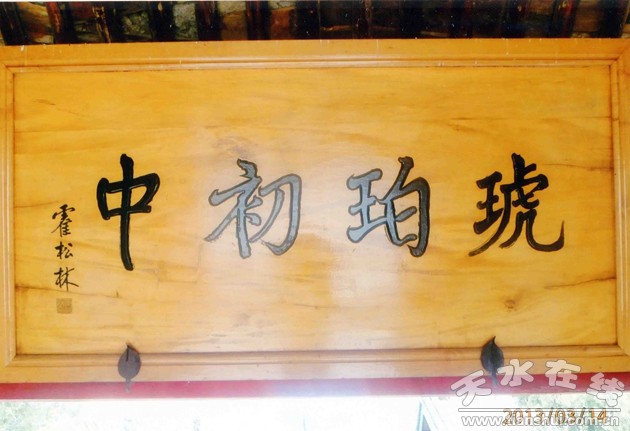 琥珀初中
霍松林
天水在线
www.tianshui.com.cn
2013/03/14